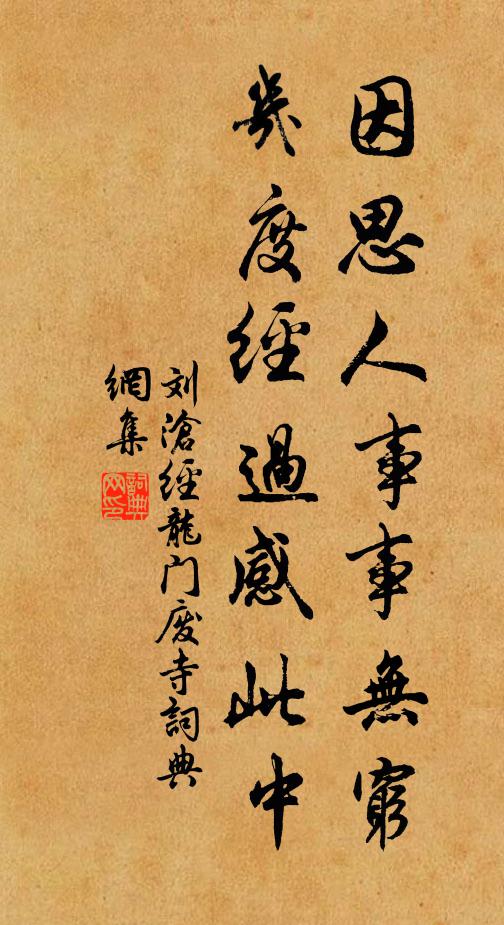 因思人事事無窮
幾度經過感此中
刘滄經龍门废寺詞典
網集
詞典
网印